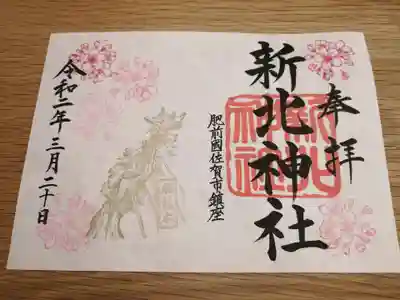 奉拝
新北神社
肥前國佐賀市鎮座
令和二年三月二十日